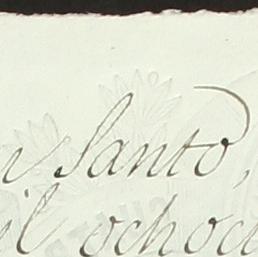 n Santo,
il ochoc